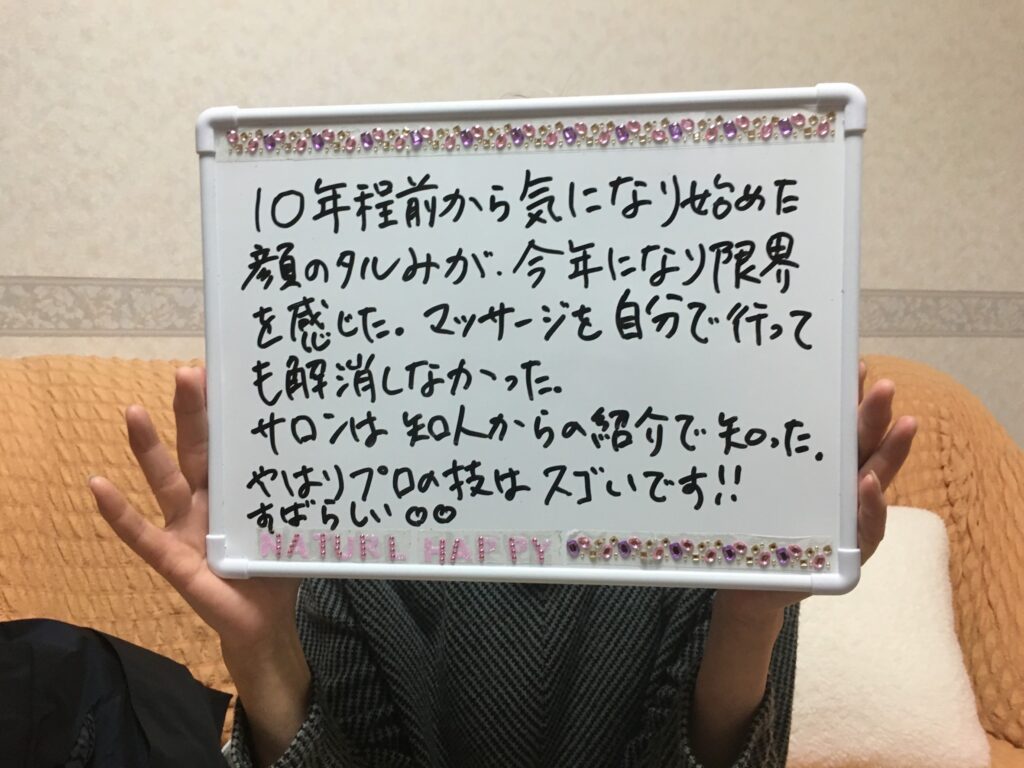 10年程前から気になり始めた
顔のタルみが、今年になり限界
を感じた。マッサージを自分で行って
も解消しなかった。
サロンは知人からの紹介で知った。
やはりプロの技はスゴいです!!
すばらしい♡♡
NATURL HAPPY